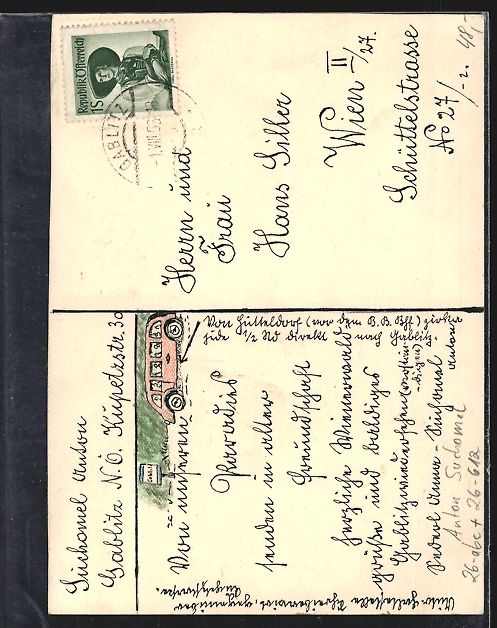 Suchomel Anton
Gablitz N.Ö. Kupetzstr. 30
GABLITZ
Von Hütteldorf (vor dem B.B. Bhf) zirka
jede ½ Std direkt nach Gablitz.
Von unserem
Paradies
senden in alter
Freundschaft
herzliche Wienerwald
grüße und baldiges
Gablitzwiedersehen
Anna - Suchomel
Anton
Anton Suchomel
26-abc + 26-61a
Republik Österreich
1S
GABLITZ
Herrn und
Frau
Hans Siller
Wien II/27.
Schüttelstrasse
No 27/
48,-